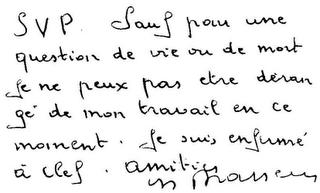 SVP. Sauf pour une
question de vie ou de mort
je ne peux pas etre déran
gé de mon travail en ce
moment. Je suis enfumé
à clef. amitiés
Brassens